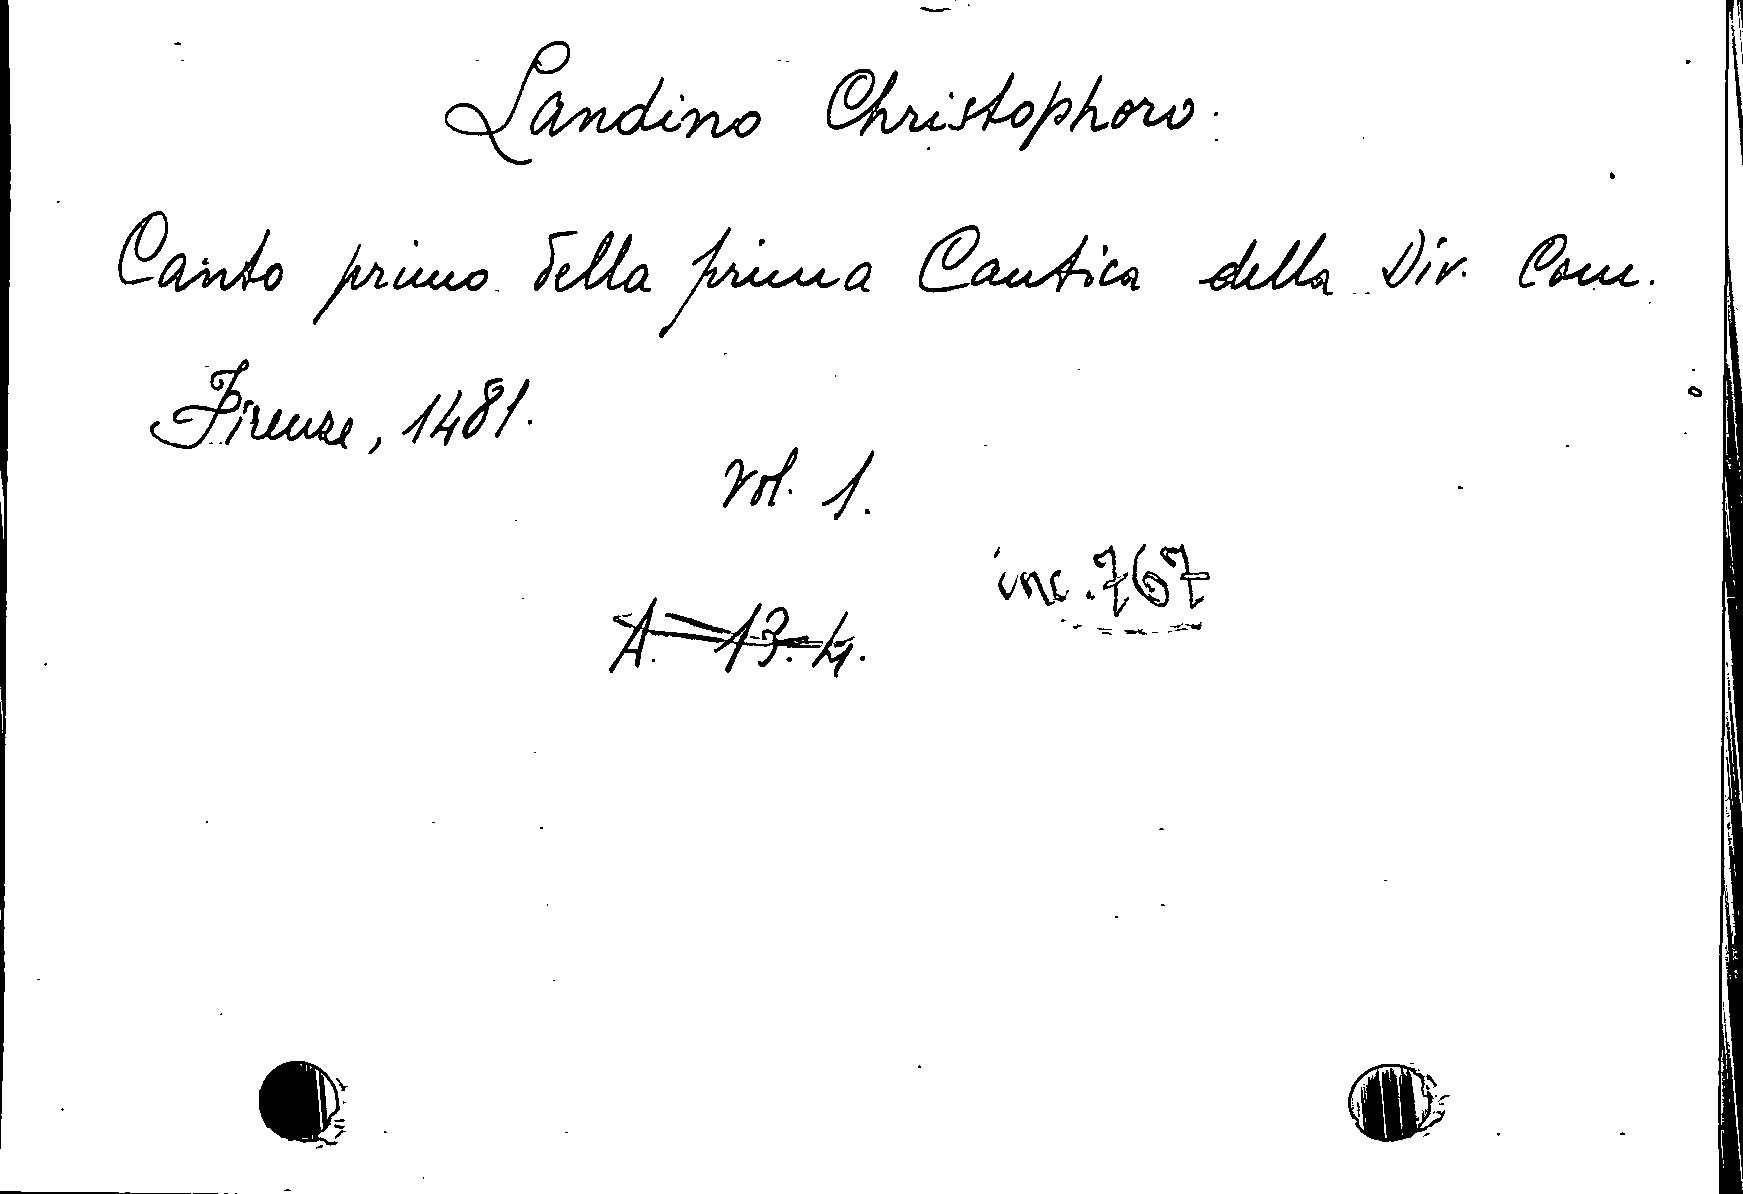 Landino Christophoro.
Canto primo della prima Cantica della Div. Com.
Firenze, 1481.
Vol. 1.
inc. 767
A. 13. 4.